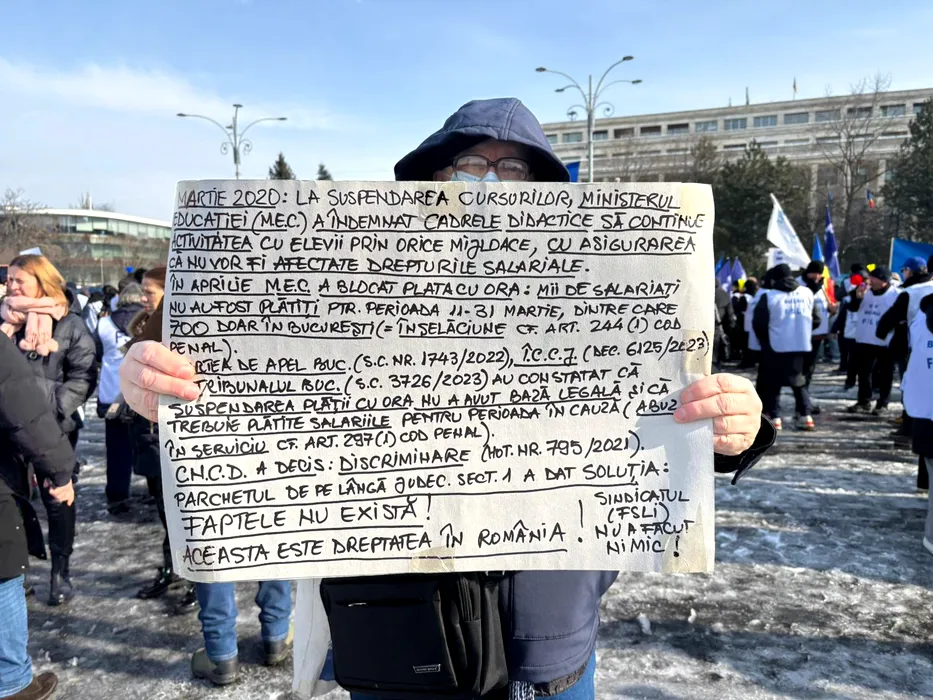 MARTIE 2020: LA SUSPENDAREA CURSURILOR, MINISTERUL
EDUCAȚIEI (M.E.C.) A ÎNDEMNAT CADRELE DIDACTICE SĂ CONTINUE
ACTIVITATEA CU ELEVII PRIN ORICE MIJLOACE, CU ASIGURAREA
CĂ NU VOR FI AFECTATE DREPTURILE SALARIALE.
ÎN APRILIE M.E.C. A BLOCAT PLATA CU ORA: MII DE SALARIAȚI
NU AU FOST PLĂTIȚI PTR. PERIOADA 11-31 MARTIE, DINTRE CARE
700 DOAR ÎN BUCUREȘTI (= ÎNȘELĂCIUNE CF. ART. 244(1) COD
PENAL).
DE APEL BUC. (S.C. NR. 1743/2022), Î.C.C.J. (DEC. 6125/2023)
TRIBUNALUL BUC. (S.C. 3726/2023) AU CONSTATAT CĂ
SUSPENDAREA PLĂȚII CU ORA NU A AVUT BAZĂ LEGALĂ ȘI CĂ
TREBUIE PLĂTITE SALARIILE PENTRU PERIOADA ÎN CAUZĂ (ABUZ
ÎN SERVICIU CF. ART. 297(1) COD PENAL).
C.N.C.D. A DECIS: DISCRIMINARE (HOT. NR. 795/2021).
PARCHETUL DE PE LÂNGĂ JUDEC. SECT. 1 A DAT SOLUȚIA:
FAPTELE NU EXISTĂ!
ACEASTA ESTE DREPTATEA ÎN ROMÂNIA!
SINDICATUL
(FSLI)
NU A FĂCUT
NIMIC!